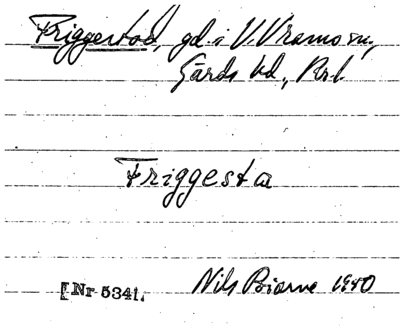 Friggestad, gd i V. Vrams sn,
Gärds hd, Krl
Friggesta
[Nr 5341. Nils 1940